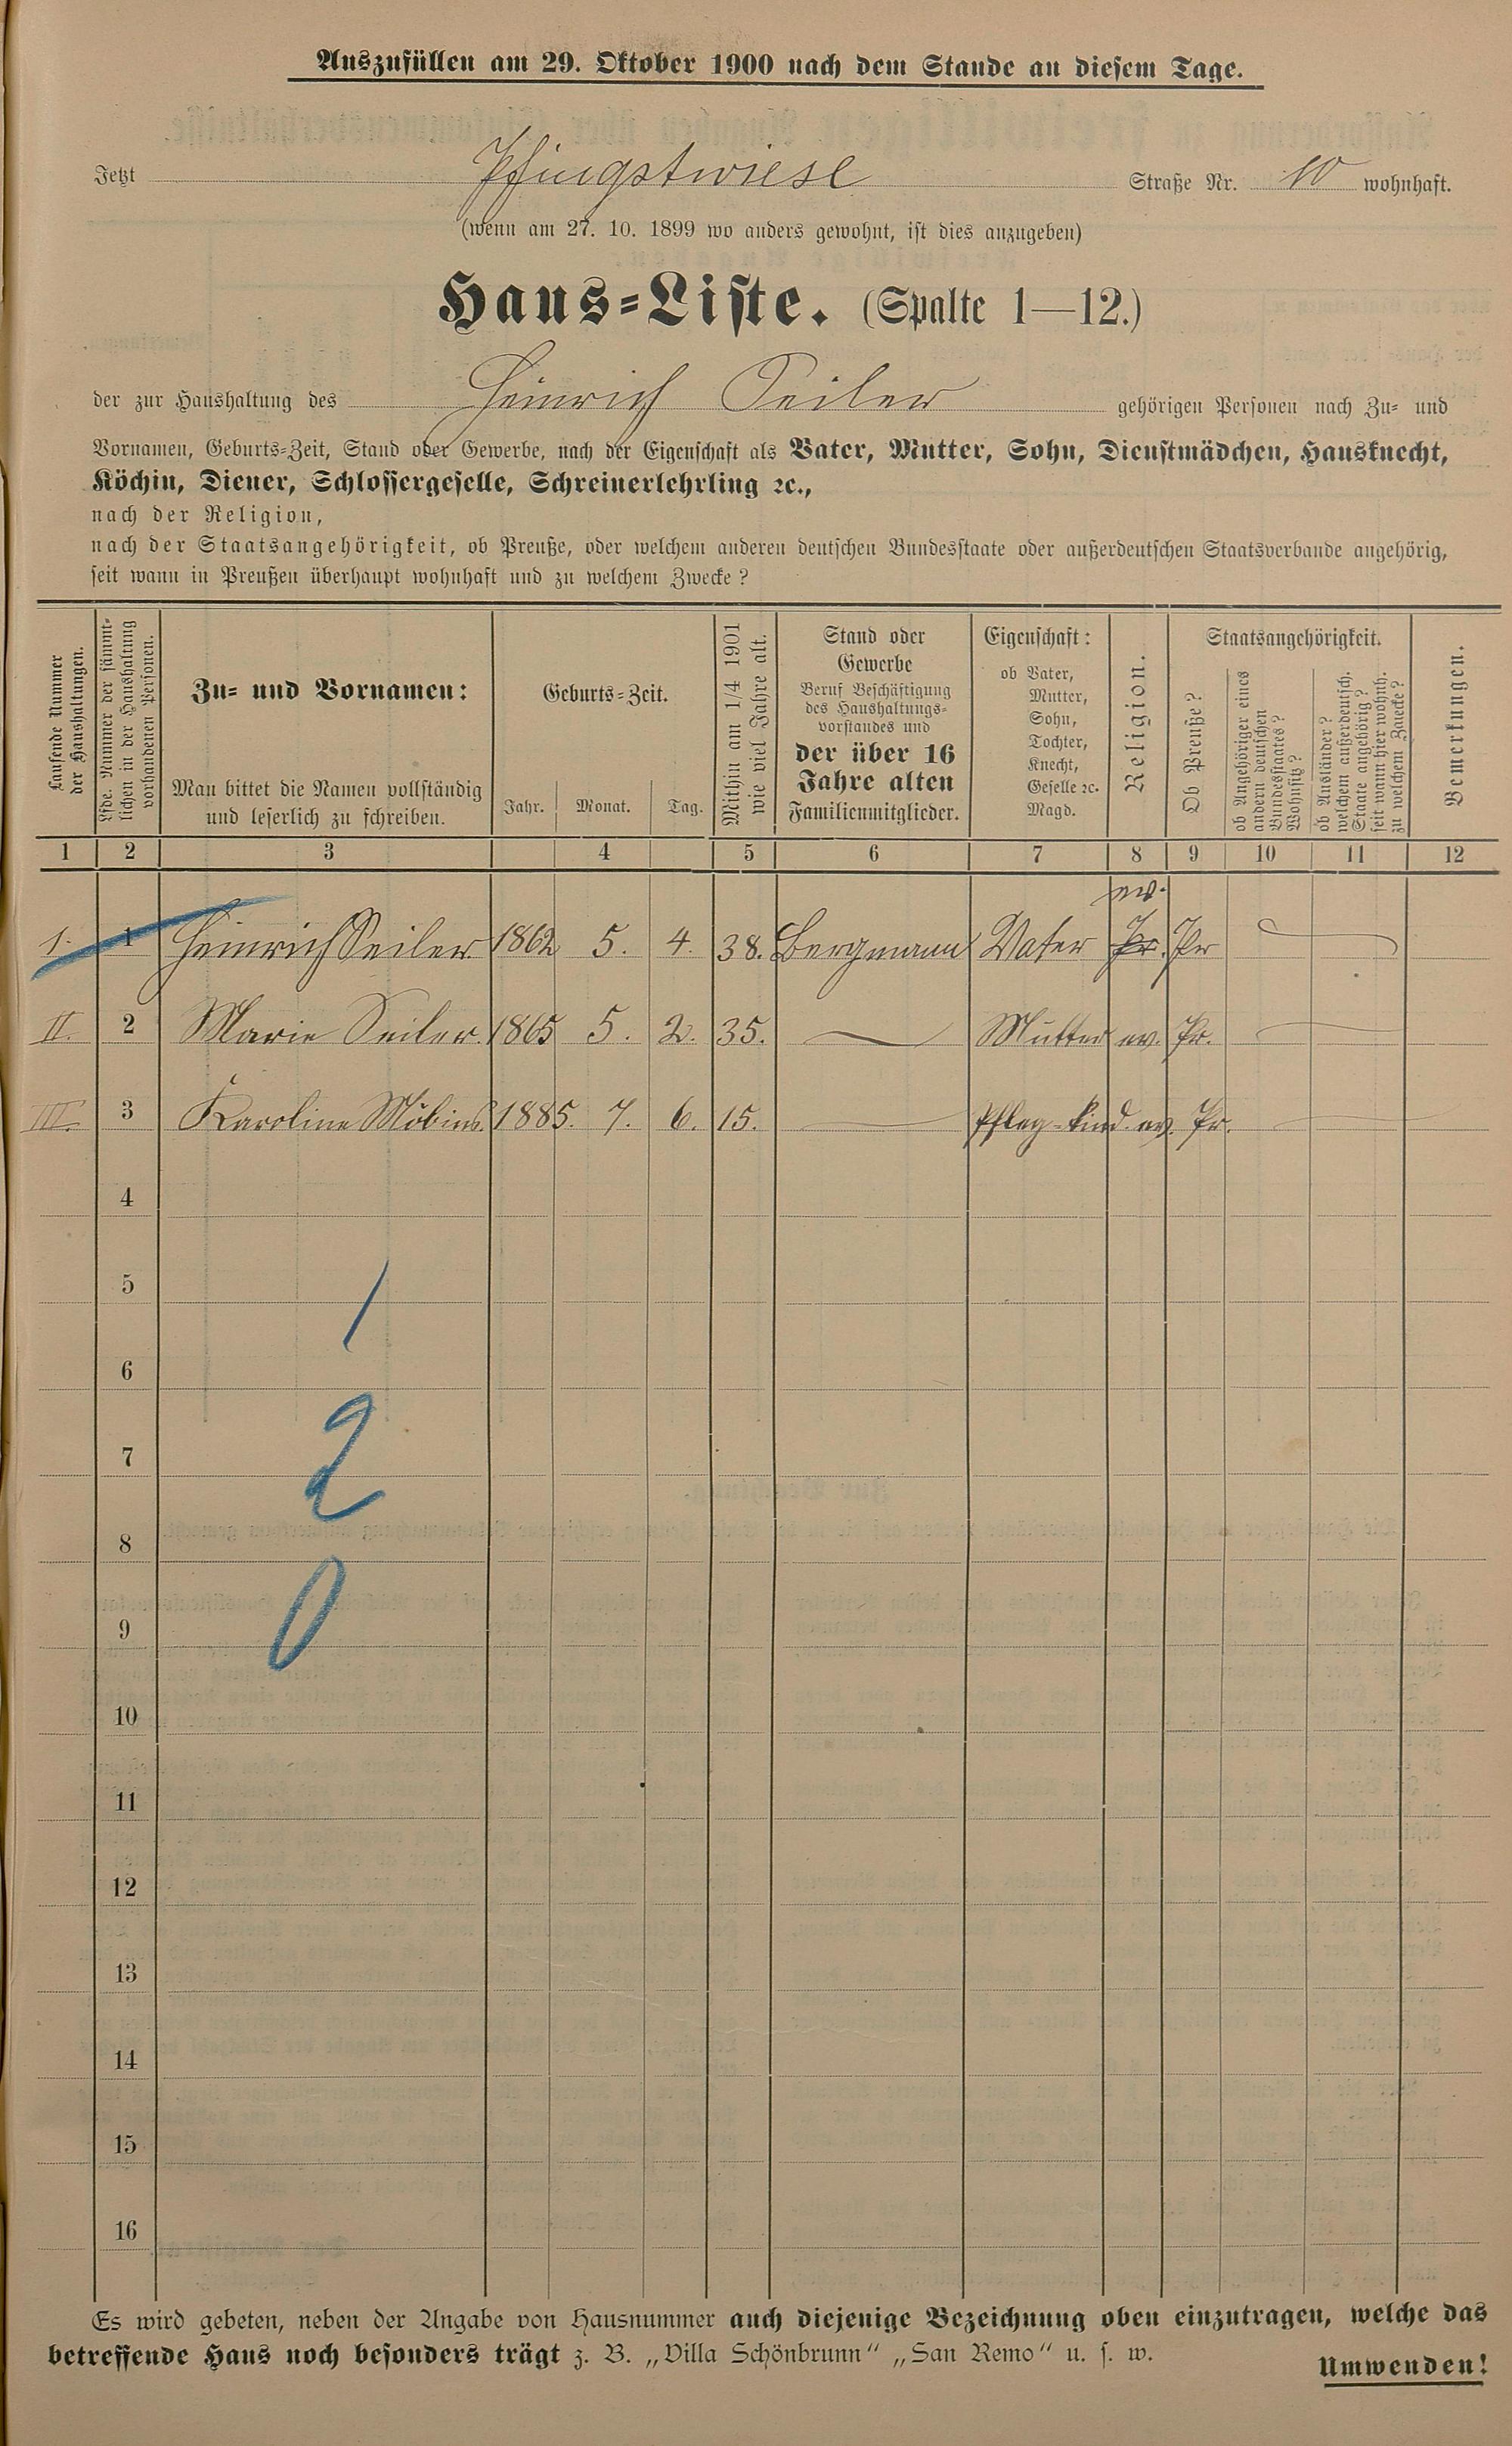 Auszufüllen am 29. Oktober 1900 nach dem Stande an diesem Tage.
Jetzt Pfingstwiese Straße Nr. 10 wohnhaft.
(wenn am 27. 10. 1899 wo anders gewohnt, ist dies anzugeben)
Haus=Liste. (Spalte 1—12.)
der zur Haushaltung des Heinrich Seiler gehörigen Personen nach Zu= und
Vornamen, Geburts=Zeit, Stand oder Gewerbe, nach der Eigenschaft als Vater, Mutter, Sohn, Dienstmädchen, Hausknecht,
Köchin, Diener, Schlossergeselle, Schreinerlehrling ꝛc.,
nach der Religion,
nach der Staatsangehörigkeit, ob Preuße, oder welchem anderen deutschen Bundesstaate oder außerdeutschen Staatsverbande angehörig,
seit wann in Preußen überhaupt wohnhaft und zu welchem Zwecke?
Laufende Nummer
der Haushaltungen.
Lfde. Nummer der sämmt=
lichen in der Haushaltung
vorhandenen Personen.
Zu= und Vornamen:
Man bittet die Namen vollständig
und leserlich zu schreiben.
Geburts=Zeit.
Jahr. Monat. Tag.
Mithin am 1/4 1901
wie viel Jahre alt.
Stand oder
Gewerbe
Beruf Beschäftigung
des Haushaltungs=
vorstandes und
der über 16
Jahre alten
Familienmitglieder.
Eigenschaft:
ob Vater,
Mutter,
Sohn,
Tochter,
Knecht,
Geselle ꝛc.
Magd.
Religion.
Staatsangehörigkeit.
Ob Preuße?
ob Angehöriger eines
andern deutschen
Bundesstaates?
Wohnsitz?
ob Ausländer?
welchem außerdeutsch.
Staate angehörig?
seit wann hier wohnh.
zu welchem Zwecke?
Bemerkungen.
1 2 3 4 5 6 7 8 9 10 11 12
ev.
1. 1 Heinrich Seiler 1862 5. 4. 38. Bergmann Vater Pr. Pr
II. 2 Marie Seiler. 1865 5. 2. 35. Mutter ev. Pr.
III. 3 Karoline Möbius. 1885. 7. 6. 15. Pfleg=kind. ev. Pr.
4
5
1
6
7
2
8
9
0
10
11
12
13
14
15
16
Es wird gebeten, neben der Angabe von Hausnummer auch diejenige Bezeichnung oben einzutragen, welche das
betreffende Haus noch besonders trägt z. B. „Villa Schönbrunn“ „San Remo“ u. s. w.
Umwenden!